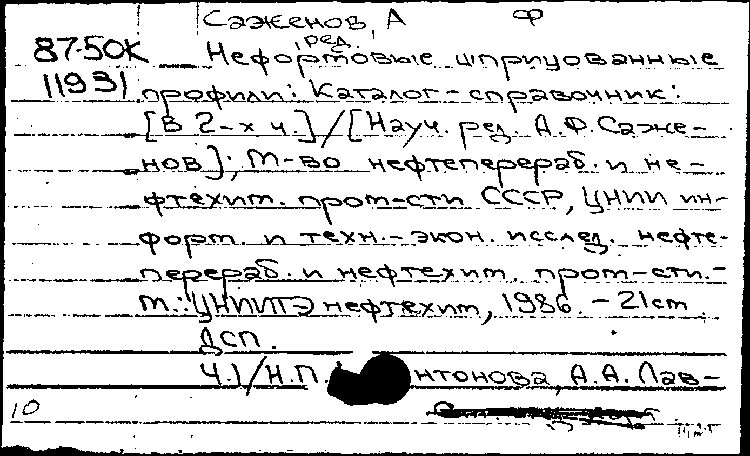 Саженов, А Ф
ред.
87-50К Неформовые шприцованные
11931 профили: Каталог-справочник:
[В 2-х ч.]/[Науч. ред. А.Ф. Саже-
нов]; М-во нефтеперераб. и не-
фтехим. пром-сти СССР, ЦНИИ ин-
форм. и техн.-экон. исслед. нефте-
перераб. и нефтехим. пром-сти.-
М.: ЦНИИТЭнефтехим, 1986. - 21см.
ДСП.
Ч.1/Н.П. нтонова, А.А. Лав-
10